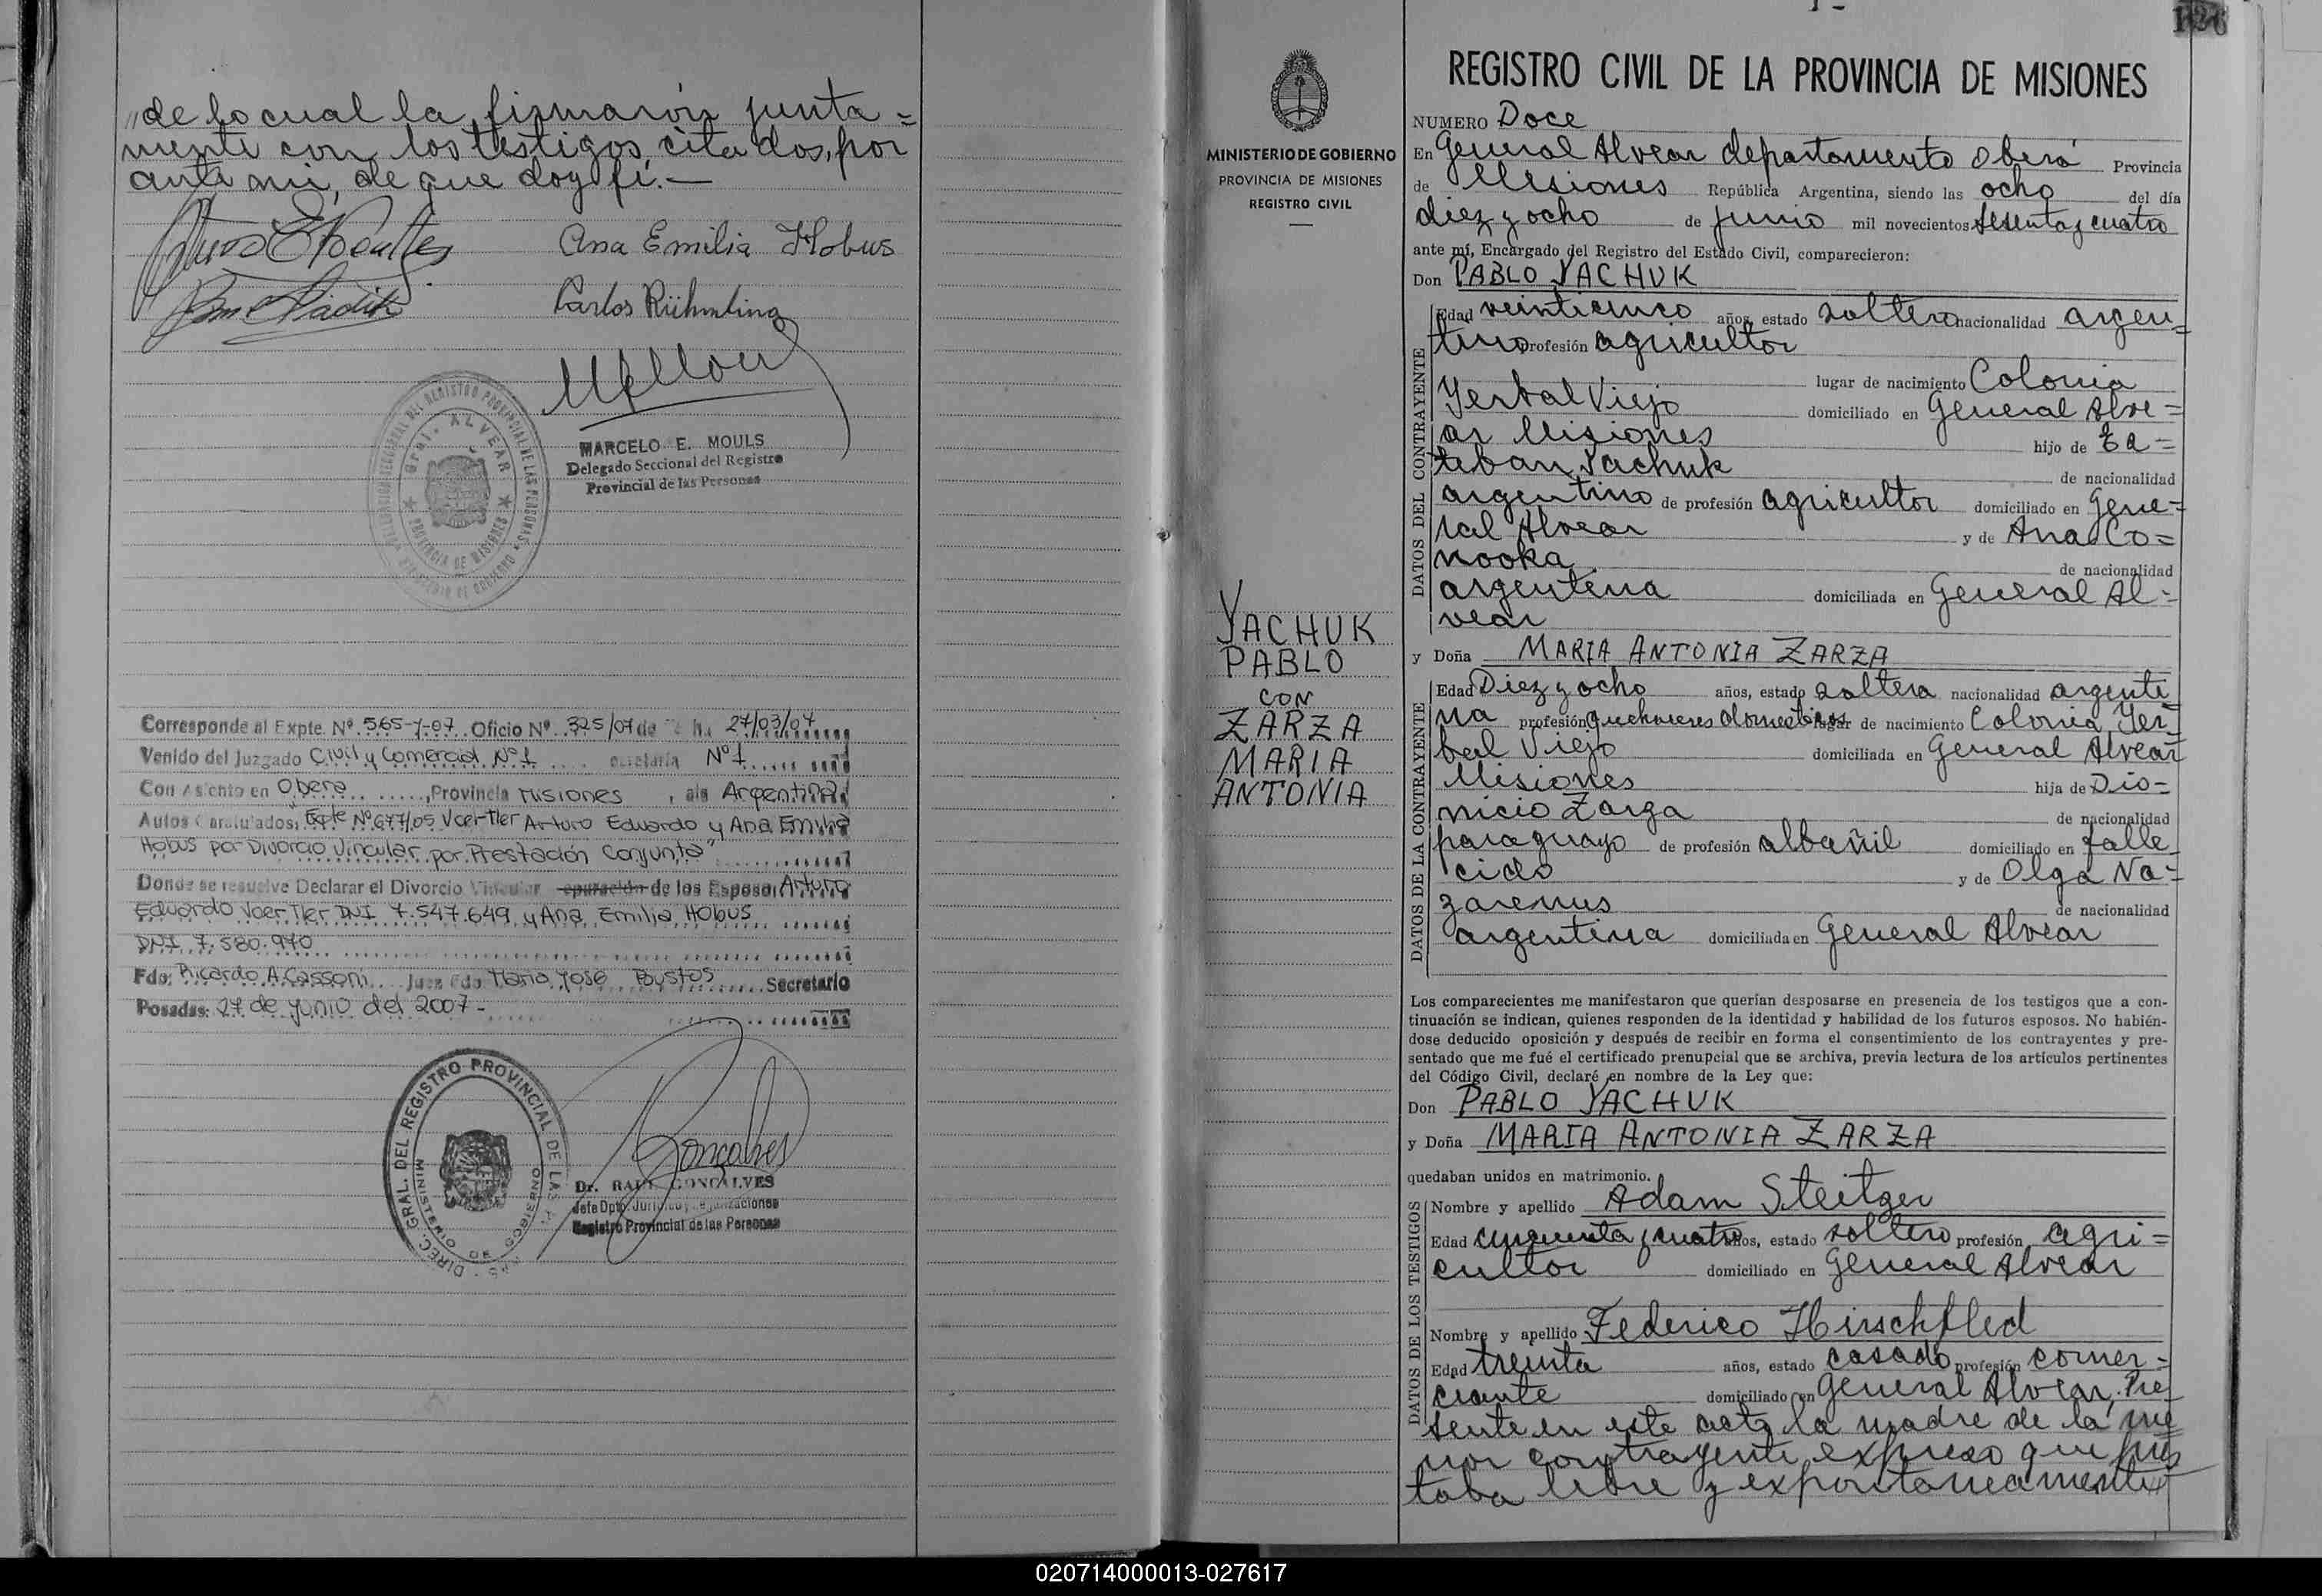 de lo cual la firmarón junta=
mente con los testigos citados, por
ante mi, de que doy fé.—
Ana Emilia Hobus
Carlos Rühmling
MARCELO E. MOULS
Delegado Seccional del Registro
Provincial de las Personas
Gral. ALVEAR
PROVINCIA DE MISIONES
Corresponde al Expte. Nº 565-7-07 Oficio Nº 325/07 de 27/03/07
Venido del Juzgado Civil y Comercial Nº1 Nº1
Con Asiento en Obera, Provincia Misiones, Argentina
Autos Caratulados, "Expte Nº677/05 Voer Tler Arturo Eduardo y Ana Emilia
Hobus por Divorcio Vincular por Prestación Conjunta"
Donde se resuelve Declarar el Divorcio Vincular de los Esposos Arturo
Eduardo Voer Tler DNI 7.547.649 y Ana Emilia Hobus
DNI 7.580.970
Fdo: Ricardo A. Cassoni Juez Fdo Maria José Bustos Secretario
Posadas: 27 de junio del 2007-
DIREC. GRAL. DEL REGISTRO PROVINCIAL DE LAS
MINISTERIO DE GOBIERNO
Gonçalves
Dr. RAUL GONCALVES
Jefe Dpto.
Registro Provincial de las Personas
126
MINISTERIO DE GOBIERNO
PROVINCIA DE MISIONES
REGISTRO CIVIL
YACHUK
PABLO
CON
ZARZA
MARIA
ANTONIA
REGISTRO CIVIL DE LA PROVINCIA DE MISIONES
NUMERO Doce
En General Alvear departamento Oberá Provincia
de Misiones República Argentina, siendo las ocho del día
diez y ocho de junio mil novecientos sesenta y cuatro
ante mí, Encargado del Registro del Estado Civil, comparecieron:
Don PABLO YACHUK
DATOS DEL CONTRAYENTE
Edad veinticinco años, estado soltero nacionalidad argen=
tino profesión agricultor
lugar de nacimiento Colonia
Yerbal Viejo domiciliado en General Alve=
ar Misiones hijo de Es=
teban Yachuk de nacionalidad
argentino de profesión agricultor domiciliado en Gene=
ral Alvear y de Ana Co=
nooka de nacionalidad
argentina domiciliada en General Al=
vear
y Doña MARIA ANTONIA ZARZA
DATOS DE LA CONTRAYENTE
Edad Diez y ocho años, estado soltera nacionalidad argenti
na profesión quehaceres domesticos lugar de nacimiento Colonia Yer=
bal Viejo domiciliada en General Alvear
Misiones hija de Dio=
nicio Zarza de nacionalidad
paraguayo de profesión albañil domiciliado en falle
cido y de Olga Na=
zarenus de nacionalidad
argentina domiciliada en General Alvear
Los comparecientes me manifestaron que querían desposarse en presencia de los testigos que a con-
tinuación se indican, quienes responden de la identidad y habilidad de los futuros esposos. No habién-
dose deducido oposición y después de recibir en forma el consentimiento de los contrayentes y pre-
sentado que me fué el certificado prenupcial que se archiva, previa lectura de los artículos pertinentes
del Código Civil, declaré en nombre de la Ley que:
Don PABLO YACHUK
y Doña MARIA ANTONIA ZARZA
quedaban unidos en matrimonio.
DATOS DE LOS TESTIGOS
Nombre y apellido Adam Steitzer
Edad cincuenta y cuatro años, estado soltero profesión agri=
cultor domiciliado en General Alvear
Nombre y apellido Federico Hirschfled
Edad treinta años, estado casado profesión comer=
ciante domiciliado en General Alvear, Pre
sente en este acto la madre de la me
nor contrayente, expreso que pres
taba libre y expontaneamente
020714000013-027617